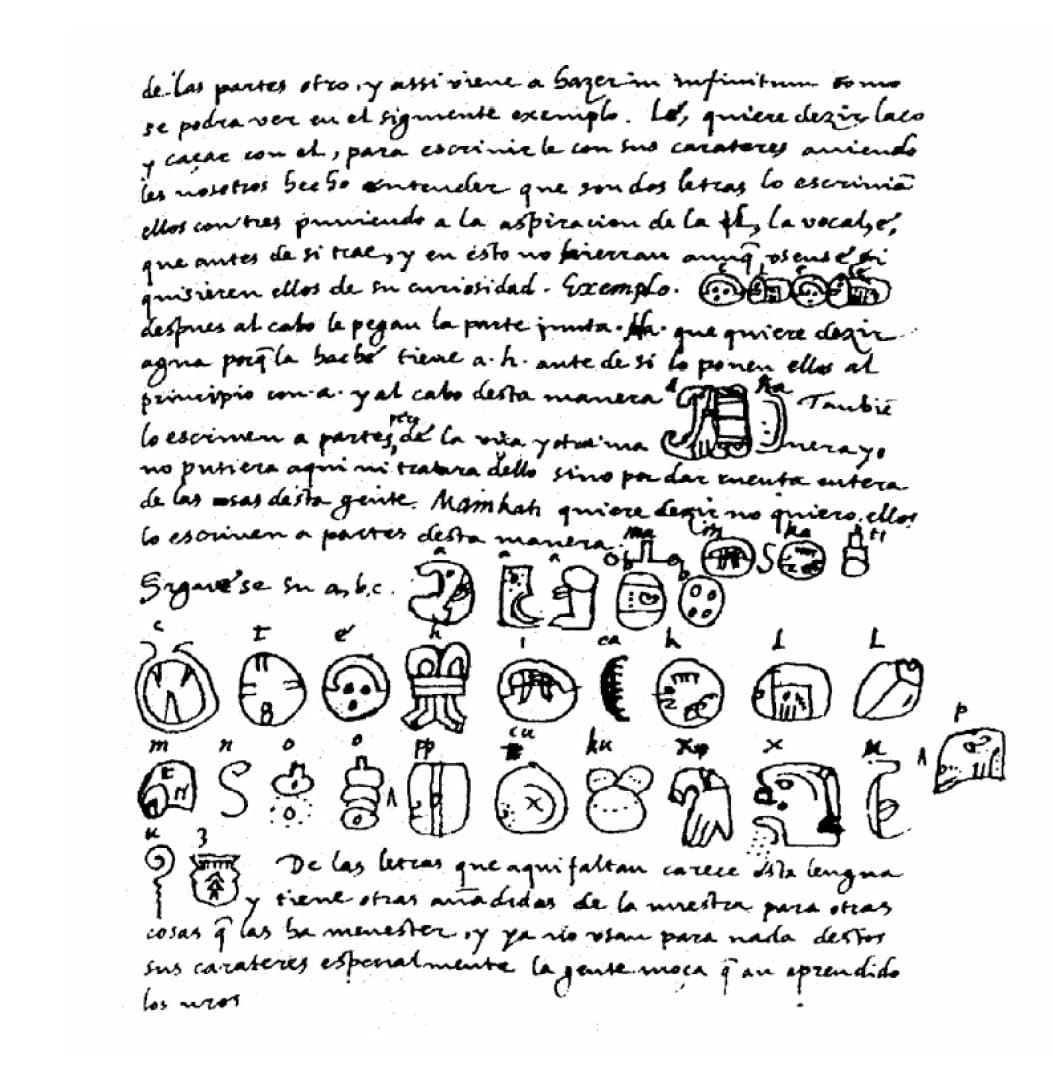 de las partes otro, y assi viene a hazer in infinitum como
se podra ver en el siguiente exemplo. Lé, quiere dezir laço
y caçar con el, para escrivirle con sus carateres aviendo
les nosotros hecho entender que son dos letras lo escrivian
ellos con tres puniendo a la aspiracion de la l, la vocal, é,
que antes de si trae, y en esto no hierran aunq̃ usense si
quisieren ellos de su curiosidad. Exemplo. e l e lé
despues al cabo le pegan la parte junta. Ha. que quiere dezir
agua porq̃ la haché tiene a. h. ante de si lo ponen ellos al
principio con a. y al cabo desta manera a ha Tambiẽ
lo escriven a partes, pero de la una y otra ma nera yo
no pusiera aqui ni tratara dello sino por dar cuenta entera
de las cosas desta gente. Mainkati quiere dezir no quiero, ellos
lo escriven a partes desta manera. ma i n ka ti
Siguese su a, b, c. a a a b b
c t é h i ca k l l
m n o o pp cu ku x x u p
u z De las letras que aqui faltan carece esta lengua
y tiene otras añadidas de la nuestra para otras
cosas q̃ las ha menester, y ya no usan para nada destos
sus carateres especialmente la gente moça q̃ an aprendido
los nros